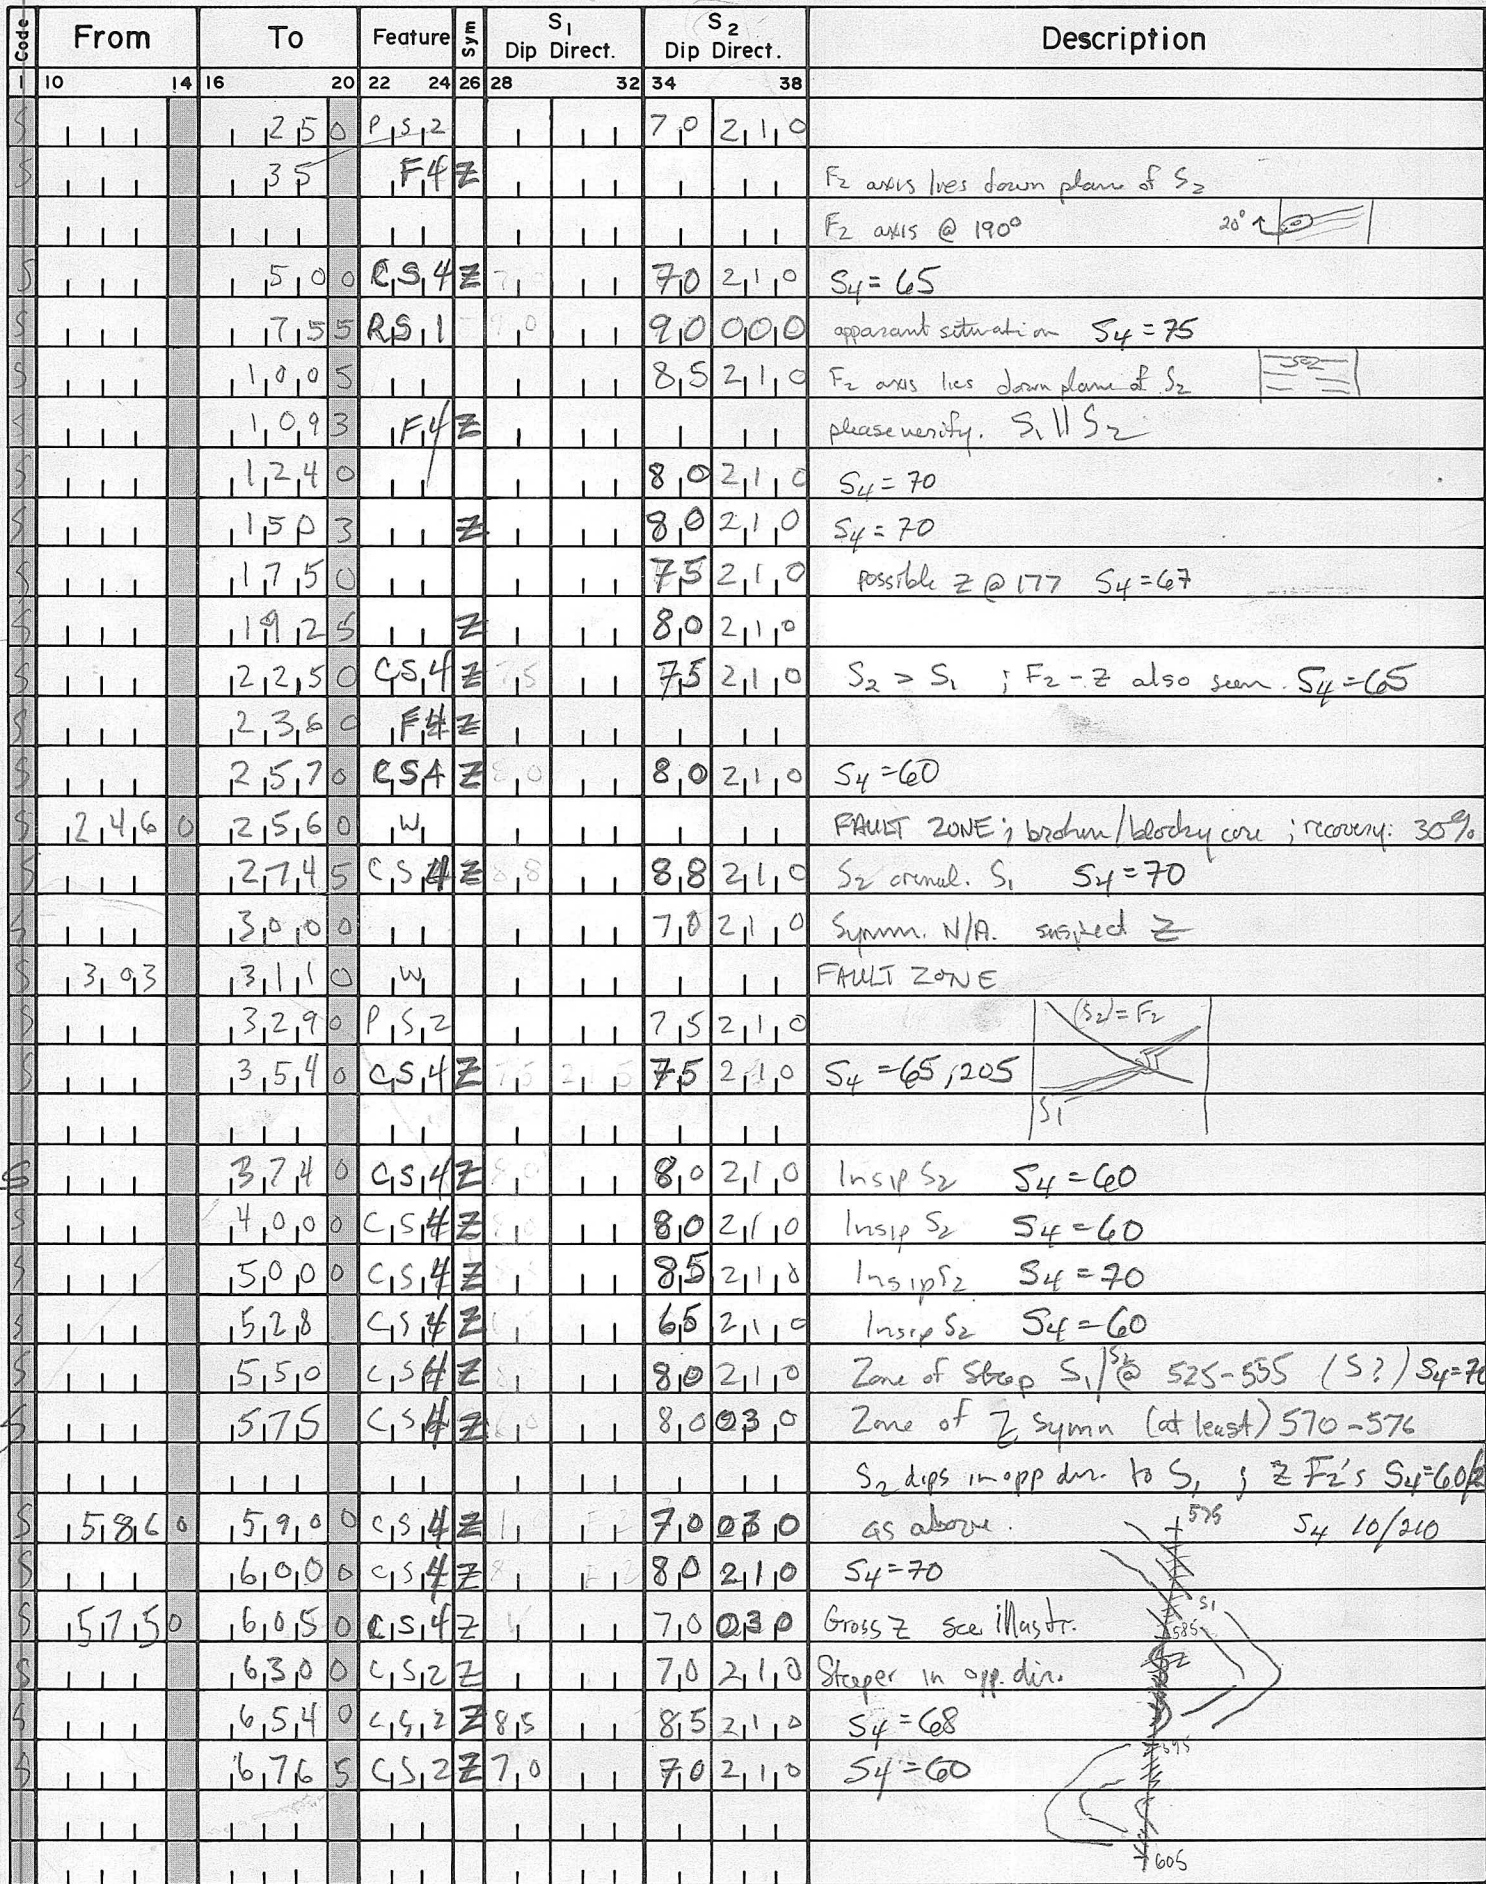 Code From To Feature Sym S1 Dip Direct. S2 Dip Direct. Description
1 10 14 16 20 22 24 26 28 32 34 38
S 250 PS2 70 210
S 35 F4 Z F2 axis lies down plane of S2
F2 axis @ 190° 20°
S 500 CS4 Z 70 210 S4 = 65
S 755 RS1 90 90 000 apparant situation S4 = 75
S 1005 85 210 F2 axis lies down plane of S2
S 1093 F4 Z please verify. S1 || S2
S 1240 80 210 S4 = 70
S 1503 Z 80 210 S4 = 70
S 1750 75 210 possible Z @ 177 S4 = 67
S 1925 Z 80 210
S 2250 CS4 Z 75 75 210 S2 > S1 ; F2 - Z also seen. S4 = 65
S 2360 F4 Z
S 2570 CS4 Z 80 80 210 S4 = 60
S 2460 2560 W FAULT ZONE ; broken/blocky core ; recovery: 30%
S 2745 CS4 Z 88 88 210 S2 crenul. S1 S4 = 70
S 3000 70 210 Symm. N/A. suspected Z
S 303 3110 W FAULT ZONE
S 3290 PS2 75 210 (S2) = F2
S 3540 CS4 Z 75 215 75 210 S4 = 65, 205
S1
S 3740 CS4 Z 80 80 210 Insip S2 S4 = 60
S 4000 CS4 Z 80 80 210 Insip S2 S4 = 60
S 5000 CS4 Z 85 210 Insip S2 S4 = 70
S 528 CS4 Z 65 210 Insip S2 S4 = 60
S 550 CS4 Z 80 210 Zone of Steep S1/S2 @ 525-555 (S?) S4=70
S 575 CS4 Z 60 80 030 Zone of Z symm (at least) 570-576
S2 dips in opp dir. to S1 ; Z F2's S4=60
S 5860 5900 CS4 Z 70 030 as above. 575 S4 10/210
S 6000 CS4 Z 80 210 S4 = 70
S 5750 6050 CS4 Z 70 030 Gross Z see illustr. S1 585
S 6300 CS2 Z 70 210 Steeper in opp. dir. Z
S 6540 CS2 Z 85 85 210 S4 = 68
S 6765 CS2 Z 70 70 210 S4 = 60 595
605